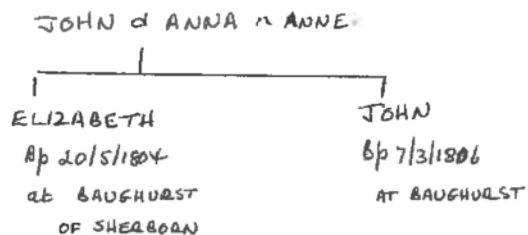 JOHN d ANNA n ANNE
ELIZABETH
Bp 20/5/1804
at BAUGHURST
OF SHERBORN
JOHN
Bp 7/3/1806
AT BAUGHURST